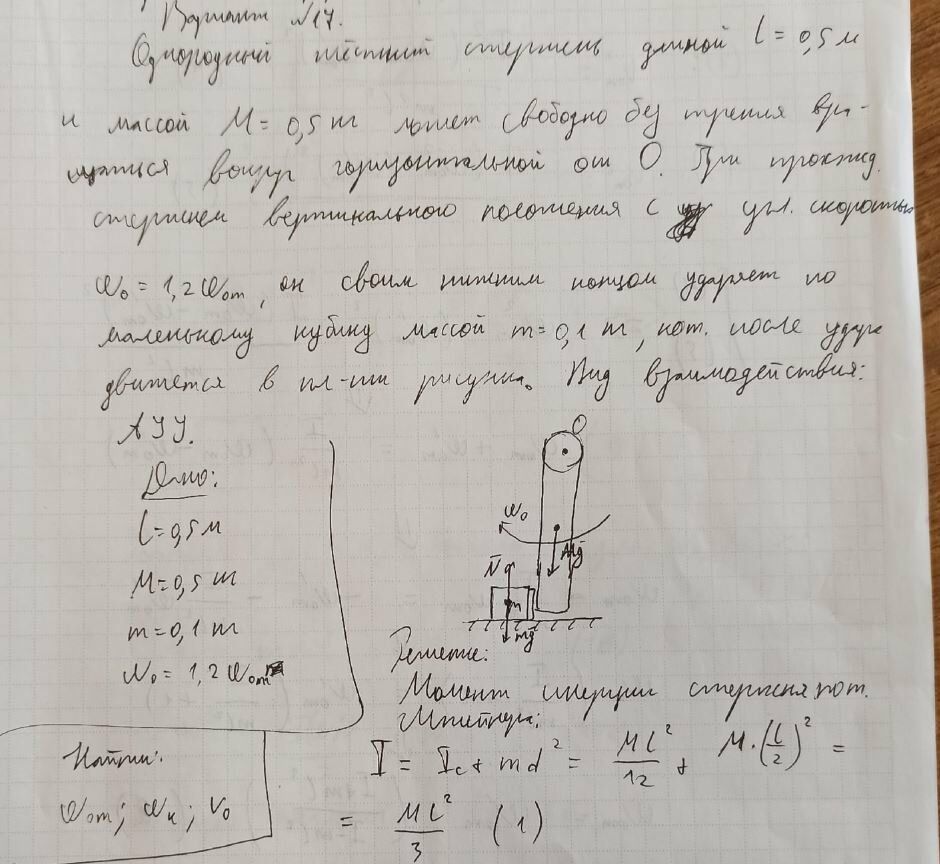 Вариант №17.
Однородный жёсткий стержень длиной l = 0,5 м
и массой M = 0,5 т может свободно без трения вра-
щаться вокруг горизонтальной оси O. При прохожд.
стержнем вертикального положения с угл. скоростью
ω₀ = 1,2 ωот, он своим нижним концом ударяет по
маленькому кубику массой m = 0,1 т, кот. после удара
движется в пл-ти рисунка. Вид взаимодействия:
АУУ.
Дано:
l = 0,5 м
M = 0,5 т
m = 0,1 т
ω₀ = 1,2 ωот
Найти:
ωот; ωк; v₀
O
ω₀
Mg
N
m
mg
Решение:
Момент инерции стержня пот.
Штейнера:
I = Ic + md² = Ml²/12 + M·(l/2)² =
= Ml²/3 (1)